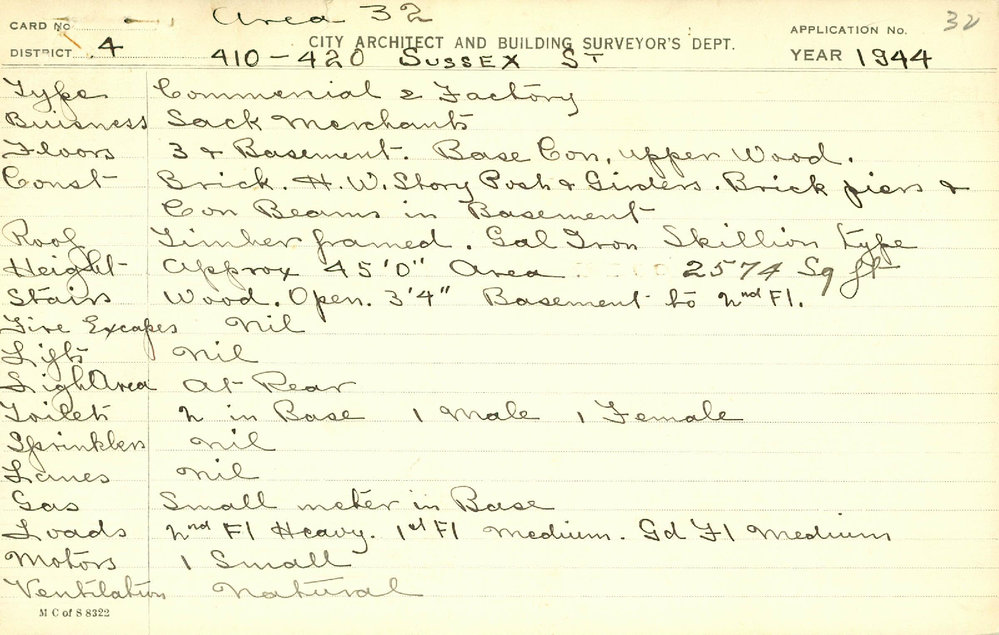 Area 32
CARD No. APPLICATION No. 32
CITY ARCHITECT AND BUILDING SURVEYOR'S DEPT.
DISTRICT 4 410-420 SUSSEX ST YEAR 1944
Type Commercial & Factory
Buisness Sack Merchants
Floors 3 + Basement. Base Con, upper Wood.
Const Brick. H.W. Story Post & Girders. Brick piers &
Con Beams in Basement
Roof Timber framed. Gal Iron Skillion type
Height Approx 45'0" Area 2574 Sq ft
Stairs Wood. Open. 3'4" Basement to 2nd Fl.
Fire Excapes Nil
Lifts Nil
LighArea At Rear
Toilets 2 in Base 1 Male 1 Female
Sprinklers Nil
Lanes Nil
Gas Small meter in Base
Loads 2nd Fl Heavy. 1st Fl Medium. Gd Fl Medium
Motors 1 Small
Ventilation Natural
M C of S 8322